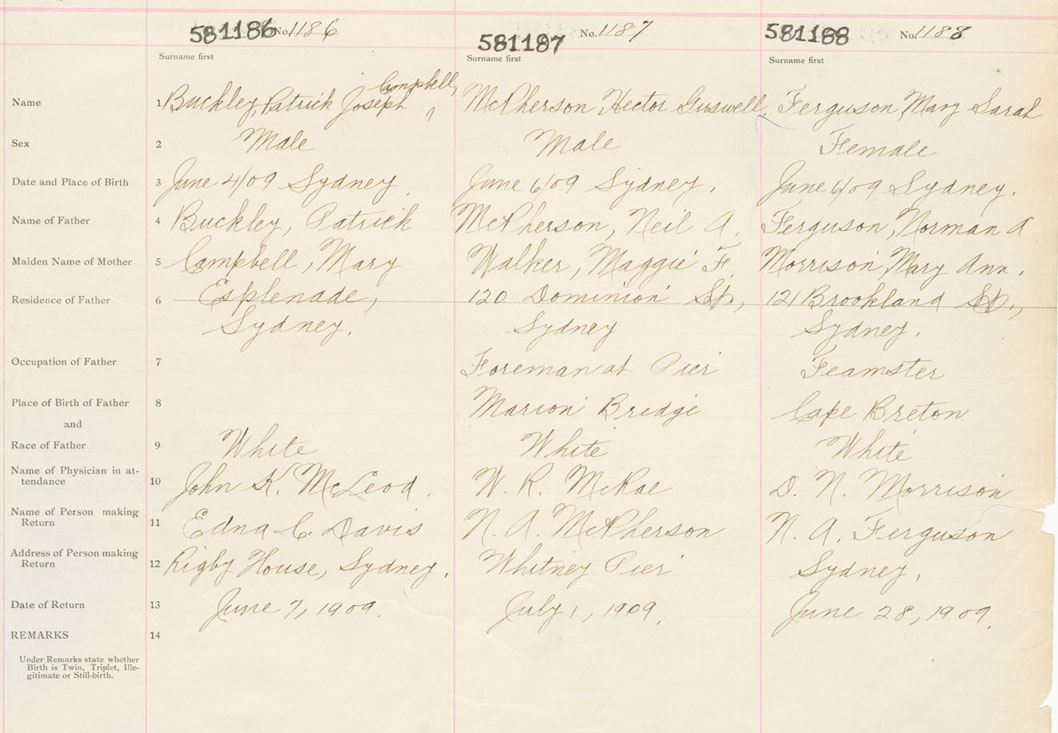 581186 No. 1186 581187 No. 1187 581188 No. 1188
Surname first Surname first Surname first
Campbell
Name 1 Buckley, Patrick Joseph McPherson, Hector Guswell Ferguson Mary Sarah
Sex 2 Male Male Female
Date and Place of Birth 3 June 4/09 Sydney. June 6/09 Sydney. June 6/09 Sydney.
Name of Father 4 Buckley, Patrick McPherson, Neil A. Ferguson, Norman A
Maiden Name of Mother 5 Campbell, Mary Walker, Maggie F. Morrison, Mary Ann.
Residence of Father 6 Esplenade, 120 Dominion St., 121 Brookland St.,
Sydney. Sydney Sydney.
Occupation of Father 7 Foreman at Pier Teamster
Place of Birth of Father 8 Marion Bridge Cape Breton
and
Race of Father 9 White White White
Name of Physician in at-
tendance 10 John K. McLeod. W. R. McRae D. N. Morrison
Name of Person making
Return 11 Edna C. Davis N. A. McPherson N. A. Ferguson
Address of Person making
Return 12 Rigby House, Sydney. Whitney Pier Sydney.
Date of Return 13 June 7, 1909. July 1, 1909. June 28, 1909.
REMARKS 14
Under Remarks state whether
Birth is Twin, Triplet, Ille-
gitimate or Still-birth.